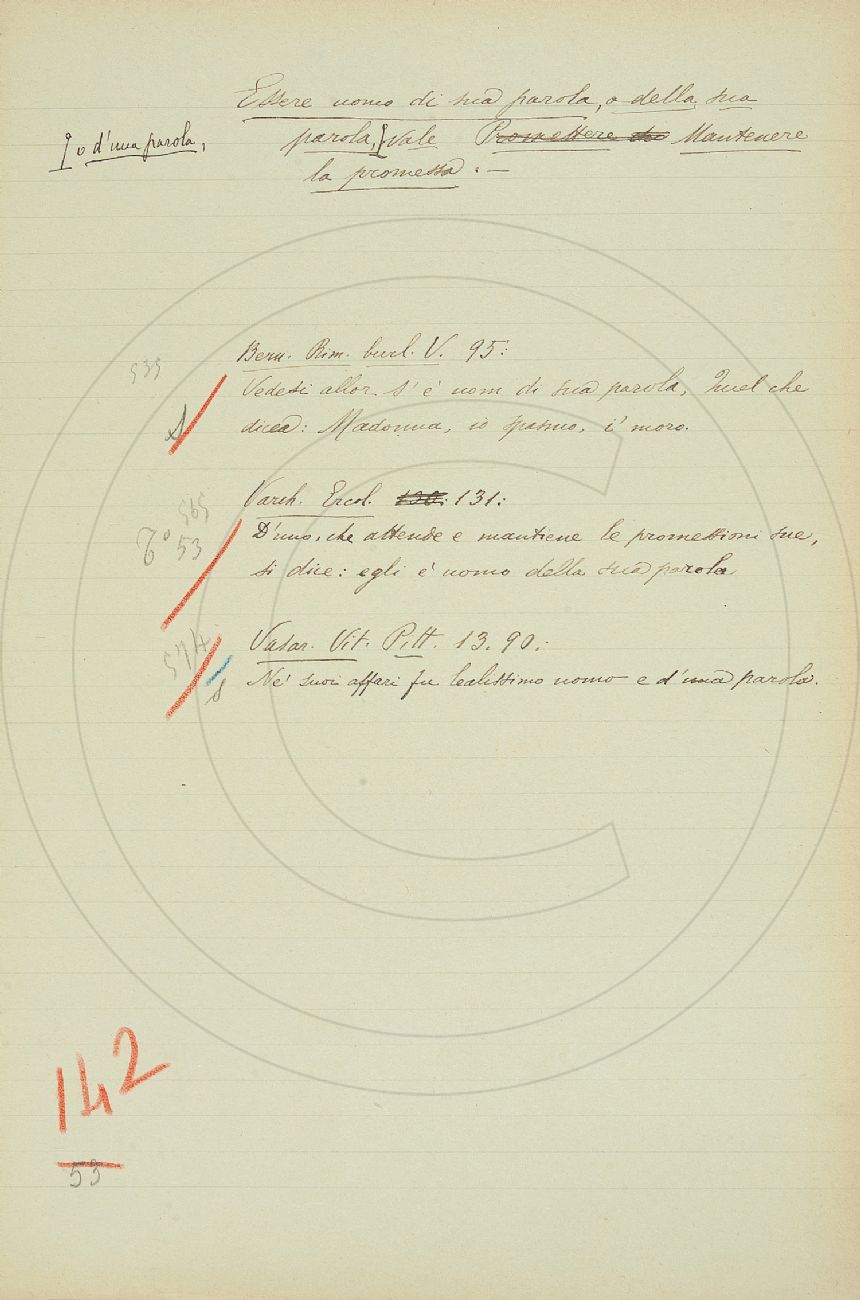 Essere uomo di sua parola, o della sua
o d'una parola,
parola, vale Promettere Mantenere
la promessa. —
535
Bern. Rim. burl. V. 95:
Vedesi allor s'è uom di sua parola, Quel che
dicea: Madonna, io spasmo, i' moro.
Varch. Ercol. 130. 131:
565
53
D'uno, che attende e mantiene le promessioni sue,
si dice: egli è uomo della sua parola
574
Vasar. Vit. Pitt. 13. 90:
Ne' suoi affari fu lealissimo uomo e d'una parola.
142
53